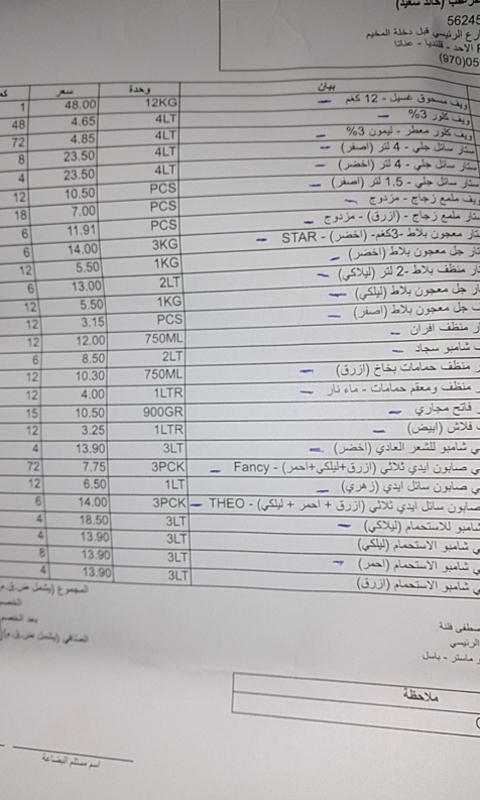 (خالد سعيد)
56245
الرئيسي قبل دخلة المخيم
الاحد - قلنديا - عناتا
(970)05
بيان وحدة سعر
ويف مسحوق غسيل - 12 كغم 12KG 48.00 1
ويف كلور 3% 4LT 4.65 48
ويف كلور معطر - ليمون 3% 4LT 4.85 72
ستار سائل جلي - 4 لتر (اصفر) 4LT 23.50 8
ستار سائل جلي - 4 لتر (اخضر) 4LT 23.50 4
ستار سائل جلي - 1.5 لتر (اصفر) PCS 10.50 12
ويف ملمع زجاج - مزدوج PCS 7.00 18
ستار ملمع زجاج - (ازرق) - مزدوج PCS 11.91 6
معجون بلاط -3كغم- (اخضر) - STAR 3KG 14.00 6
جل معجون بلاط (اخضر) 1KG 5.50 12
منظف بلاط -2 لتر (ليلاكي) 2LT 13.00 6
جل معجون بلاط (ليلكي) 1KG 5.50 12
جل معجون بلاط (اصفر) PCS 3.15 12
منظف افران 750ML 12.00 12
شامبو سجاد 2LT 8.50 6
منظف حمامات بخاخ (ازرق) 750ML 10.30 12
منظف ومعقم حمامات - ماء نار 1LTR 4.00 12
فاتح مجاري 900GR 10.50 15
فلاش (ابيض) 1LTR 3.25 12
شامبو للشعر العادي (اخضر) 3LT 13.90 4
صابون ايدي ثلاثي (ازرق+ليلكي+احمر) - Fancy 3PCK 7.75 72
صابون سائل ايدي (زهري) 1LT 6.50 12
صابون سائل ايدي ثلاثي (ازرق + احمر + ليلكي) - THEO 3PCK 14.00 6
شامبو للاستحمام (ليلاكي) 3LT 18.50 4
شامبو الاستحمام (ليلكي) 3LT 13.90 4
شامبو الاستحمام (احمر) 3LT 13.90 8
شامبو الاستحمام (ازرق) 3LT 13.90 4
المجموع (يشمل ض.ق.م
الخصم
بعد الخصم
الصافي (يشمل ض.ق.م)
الرئيسي
ماستر - باسل
ملاحظة
اسم مستلم البضاعة